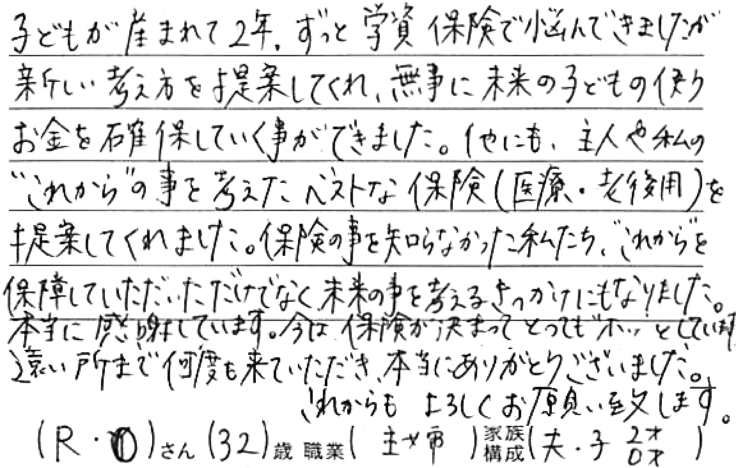 子どもが産まれて2年、ずっと学資保険で悩んできましたが
新しい考え方を提案してくれ、無事に未来の子どもの使う
お金を確保していく事ができました。他にも、主人や私の
"これから"の事を考えたベストな保険(医療・老後用)を
提案してくれました。保険の事を知らなかった私たち、"これから"を
保障していただいただけでなく、未来の事を考えるきっかけにもなりました。
本当に感謝しています。今は保険が決まってとってもホッとしています
遠い所まで何度も来ていただき、本当にありがとうございました。
これからもよろしくお願い致します。
(R・O)さん(32)歳 職業(主婦)家族構成(夫・子 2才 0才)